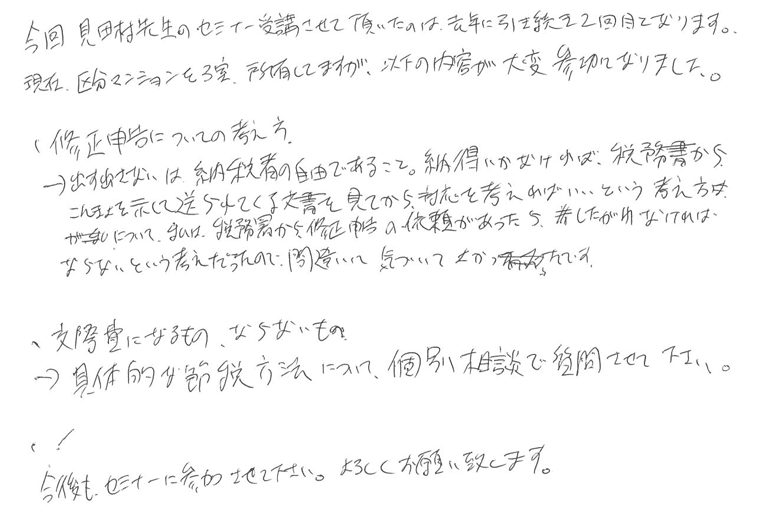 今回 見田村先生のセミナー受講させて頂いたのは、去年に引き続き2回目となります。
現在、区分マンションを3室、所有してますが、以下の内容が大変参考になりました。
、修正申告についての考え方
→出す出さないは、納税者の自由であること。納得いかなければ、税務署から
を示して送られてくる文書を見てから、対応を考えればいい、という考え方は
について、私は、税務署から修正申告の依頼があったら、したがわなければ
ならないという考えだったので、間違いに気づいてよかったです。
、交際費になるもの、ならないもの
→具体的な節税方法について、個別相談で質問させて下さい。
今後も、セミナーに参加させて下さい。よろしくお願い致します。